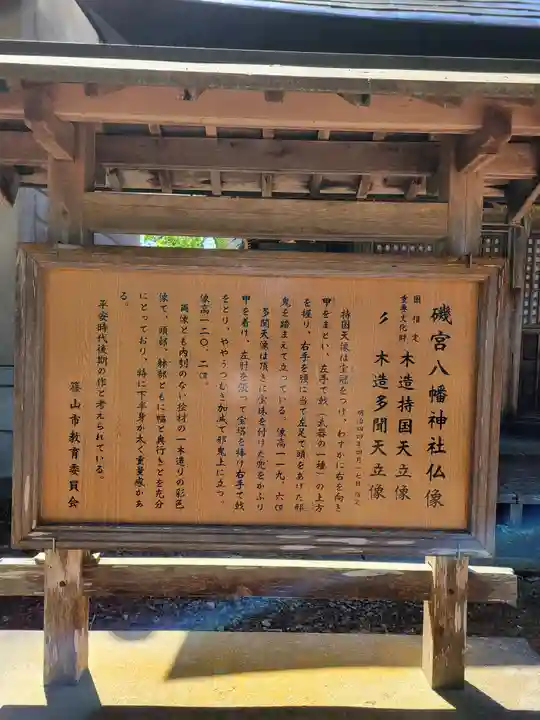 磯宮八幡神社仏像
国指定
重要文化財
木造持国天立像
〃 木造多聞天立像
明治四四年四月一七日指定
持国天像は宝冠をつけ、わずかに右を向き
甲をまとい、左手で戟(武器の一種)の上方
を握り、右手を腰に当て左足で頭をあげた邪
鬼を踏まえて立っている。像高一一九、六㎝
多聞天像は頂きに宝珠を付けた兜をかぶり
甲を着け、左肘を張って宝塔を捧げ右手で戟
をとり、ややうつむき加減で邪鬼上に立つ。
像高一二〇、二㎝。
両像とも内刳のない桧材の一木造りの彩色
像で、頭部、躰部ともに幅と奥行きとを充分
にとっており、特に下半身が太く重量感があ
る。
平安時代後期の作と考えられている。
篠山市教育委員会